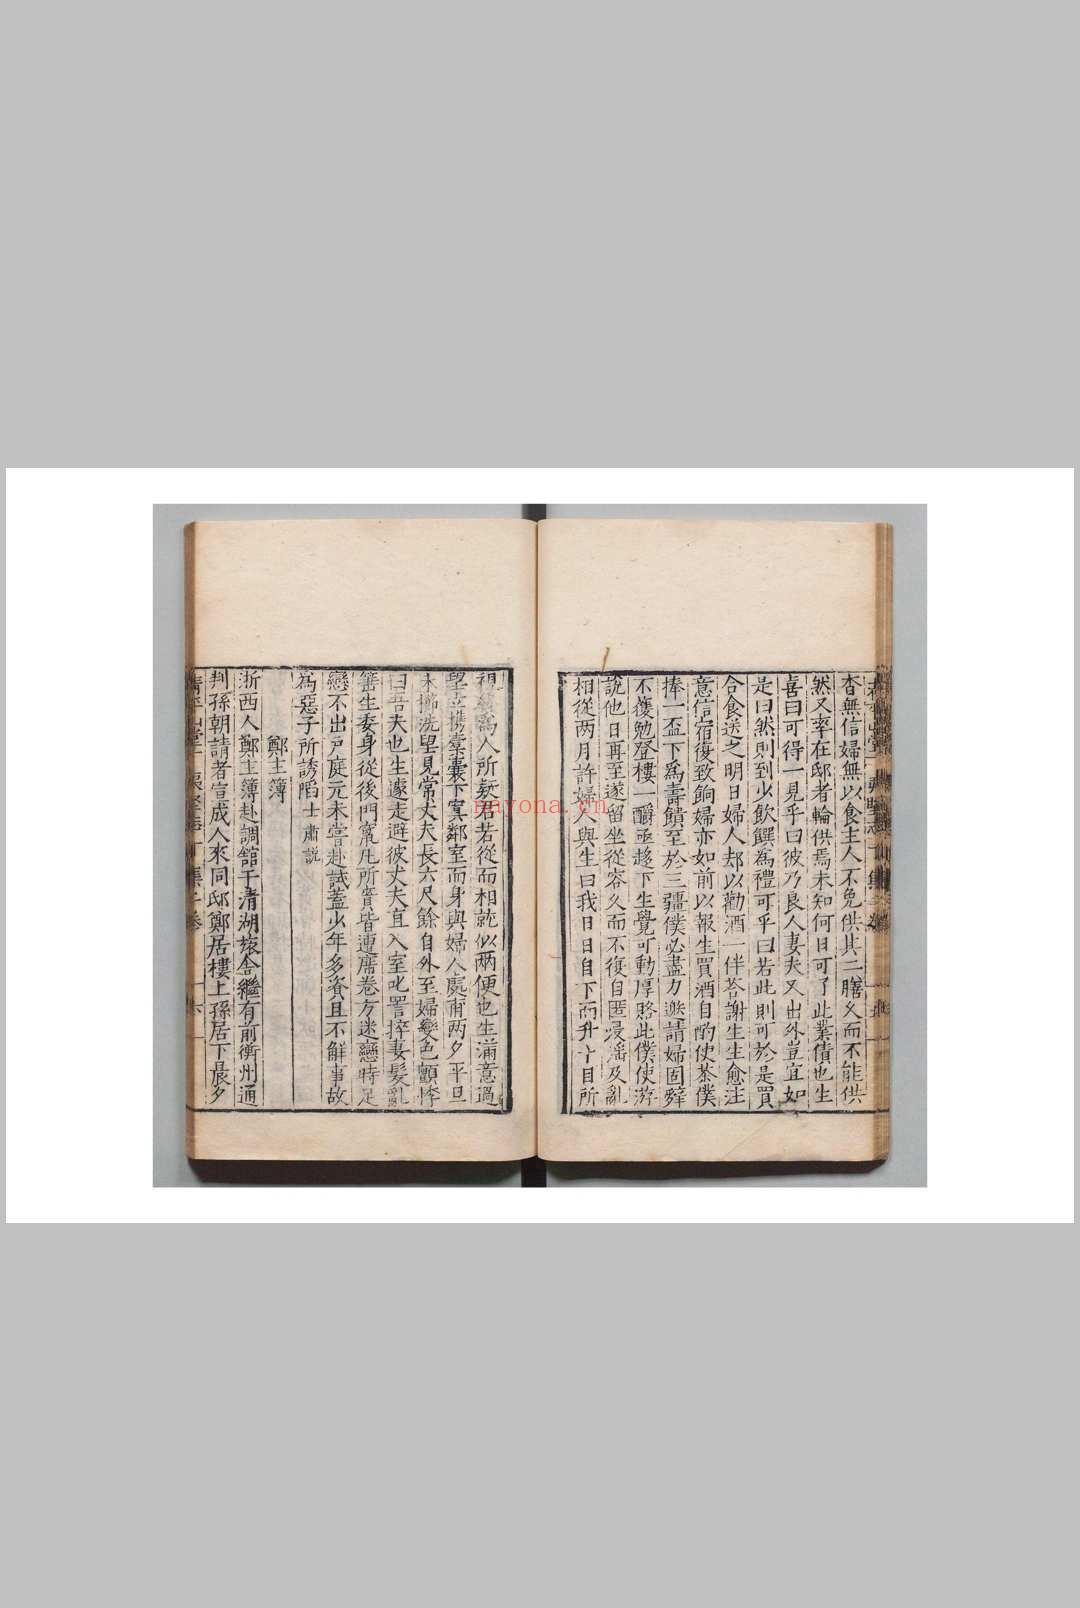 杳無信婦無以食主人不免供其二膳久而不能供
然又率在邸者輪供焉未知何日可了此業債也生
喜曰可得一見乎曰彼乃良人妻夫又出外豈宜如
是曰然則到少飲饌為禮可乎曰若此則可於是買
合食送之明日婦人却以勸酒一伴荅謝生生愈注
意信宿復致餉婦亦如前以報生買酒自酌使茶僕
捧一盃下為壽饋至於三彊僕必盡力邀請婦固辭
不獲勉登樓一釂亟趨下生覺可動厚賂此僕使游
說他日再至遂留坐從容久而不復自匿浸淫及亂
相從两月許婦人與生曰我日日自下而升十目所
視 為人所疑君若從而相就似两便也生滿意過
望立携槖囊下寘鄰室而身與婦人處甫两夕平旦
未櫛洗望見常丈夫長六尺餘自外至婦變色顫悸
曰吾夫也生遽走避彼丈夫直入室叱詈捽妻髮亂
箠生委身從後門竄凡所賫皆遭席卷方迷戀時足
戀不出戸庭元未嘗赴試蓋少年多資且不鮮事故
為惡子所誘䧟士肅説
鄭主簿
浙西人鄭主簿赴調舘于清湖旅舍繼有前衢州通
判孫朝請者宣成人來同邸鄭居樓上孫居下晨夕
清平山堂 夷堅志丁集 卷
nayona.cn